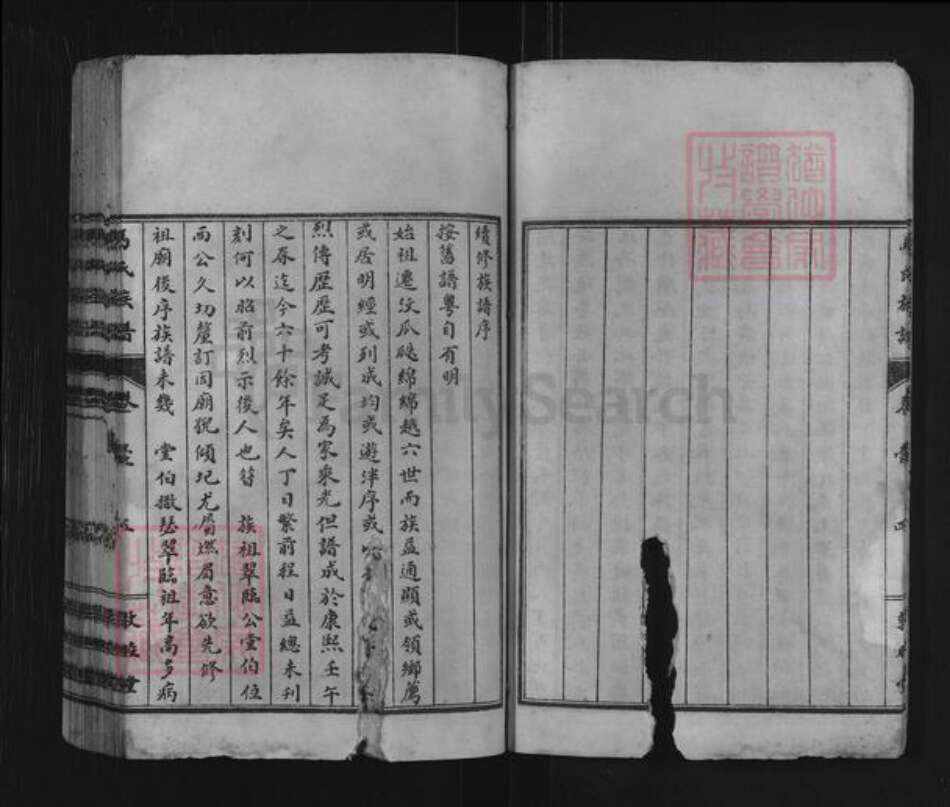 續修族譜序
按舊譜粤自有明
始祖遷汶瓜瓞綿綿越六世而族益通顯或領鄉薦
或居明經或列成均或遊泮序或以
烈傳歷歷可考誠足為家乘光但譜成於康熙壬午
之春迄今六十餘年矣人丁日繁前程日益總未刊
刻何以昭前烈示後人也昔 族祖翠臨公堂伯位
西公久切釐訂因廟貌傾圮尤屬燃眉意欲先修
祖廟後序族譜未幾 堂伯撤瑟翠臨祖年高多病
馮氏族譜 卷壹 敦睦堂
族譜 卷壹
FamilySearch
譜學會